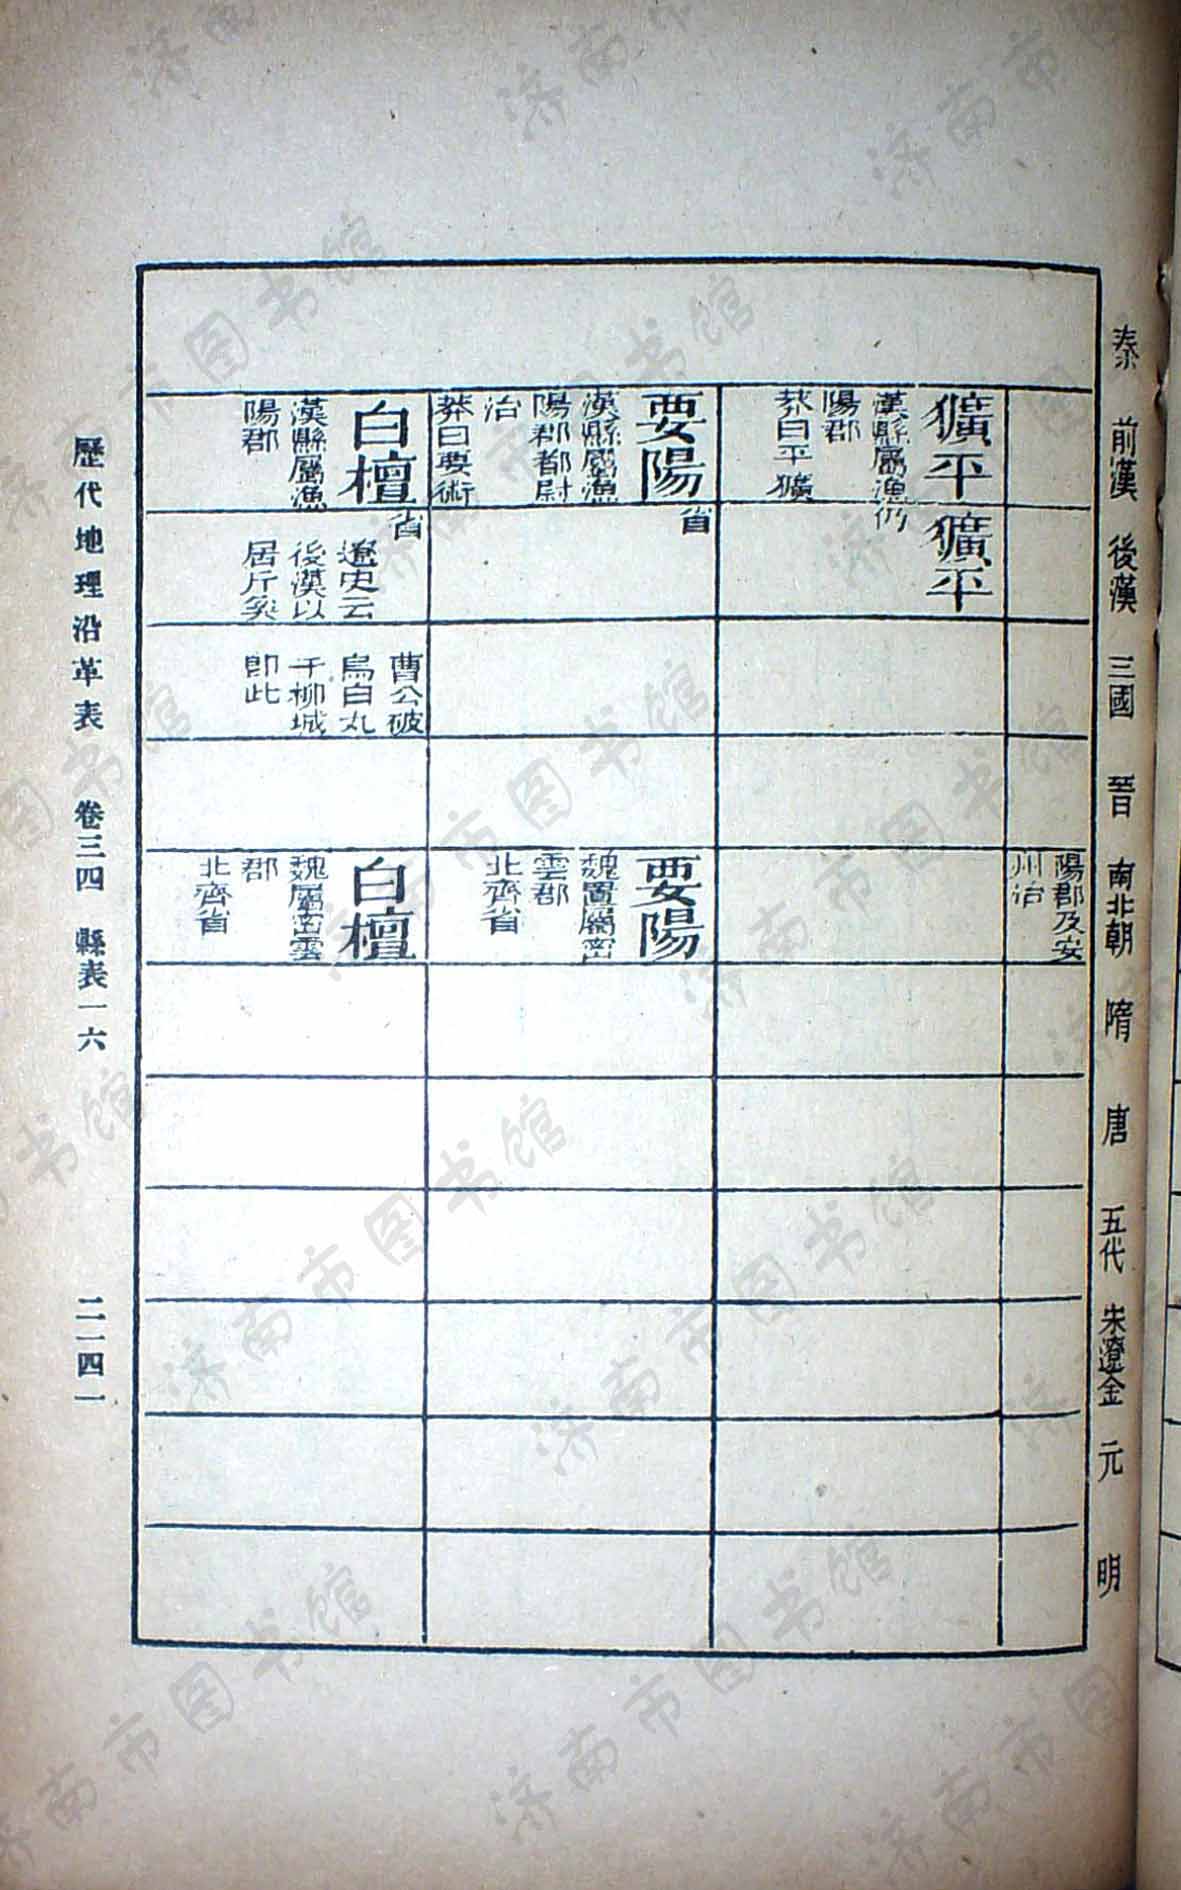 秦 前漢 後漢 三國 晉 南北朝 隋 唐 五代 宋遼金 元 明
陽郡及安
州治
獷平
漢縣屬漁
陽郡
莽曰平獷
獷平
仍
要陽
漢縣屬漁
陽郡都尉
治
莽曰要術
省
要陽
魏置屬密
雲郡
北齊省
白檀
漢縣屬漁
陽郡
省
遼史云
後漢以
居斤奚
曹公破
烏白丸
于柳城
卽此
白檀
魏屬密雲
郡
北齊省
歷代地理沿革表 卷三四 縣表一六 二一四一
济南市图书馆